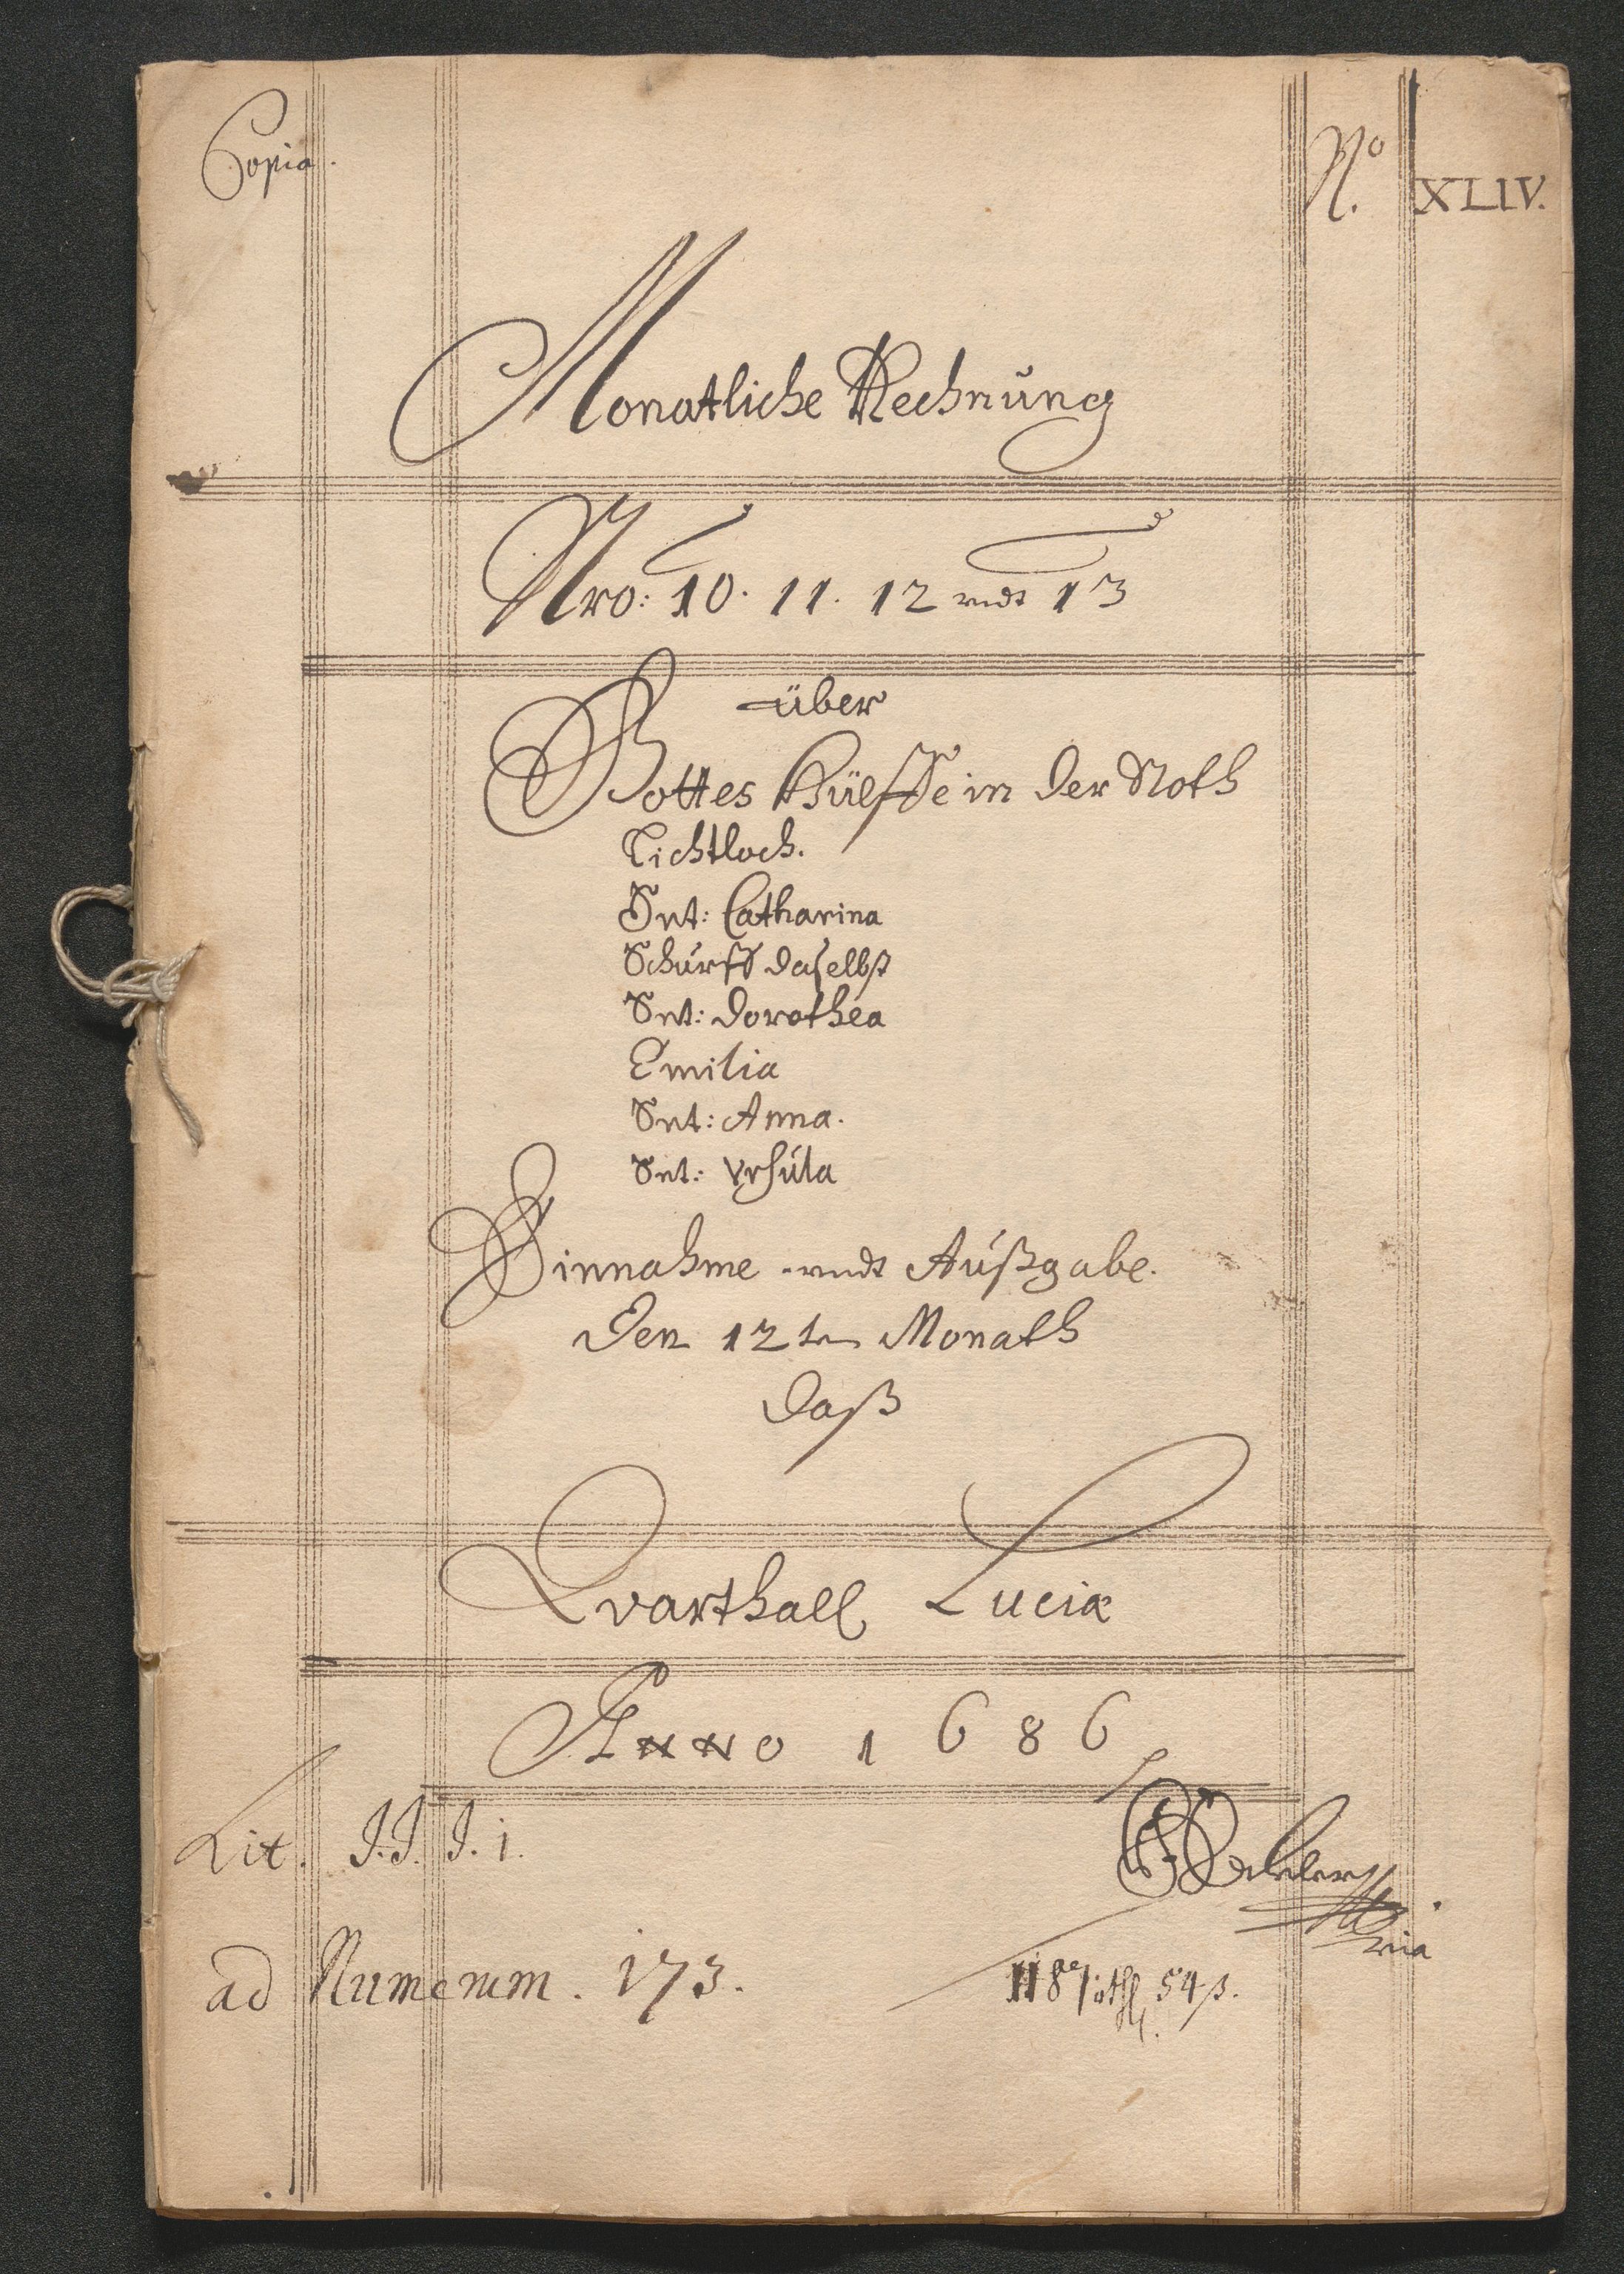 Copia.
No. XLIV.
Monatliche Rechnung
Nro: 10. 11. 12 undt 13
über
Gottes Hülffe in der Noth
Lichtloch.
Snt: Catharina
Schurff daselbst
Snt: Dorothea
Emilia
Snt: Anna.
Snt: Vrsula
Einnahme undt Außgabe.
Den 12ten Monath
Daß
Qvarthall Luciæ
Anno 1686
Lit. J.J. J. i.
mria
ad Numerum. 173.
54 ß.